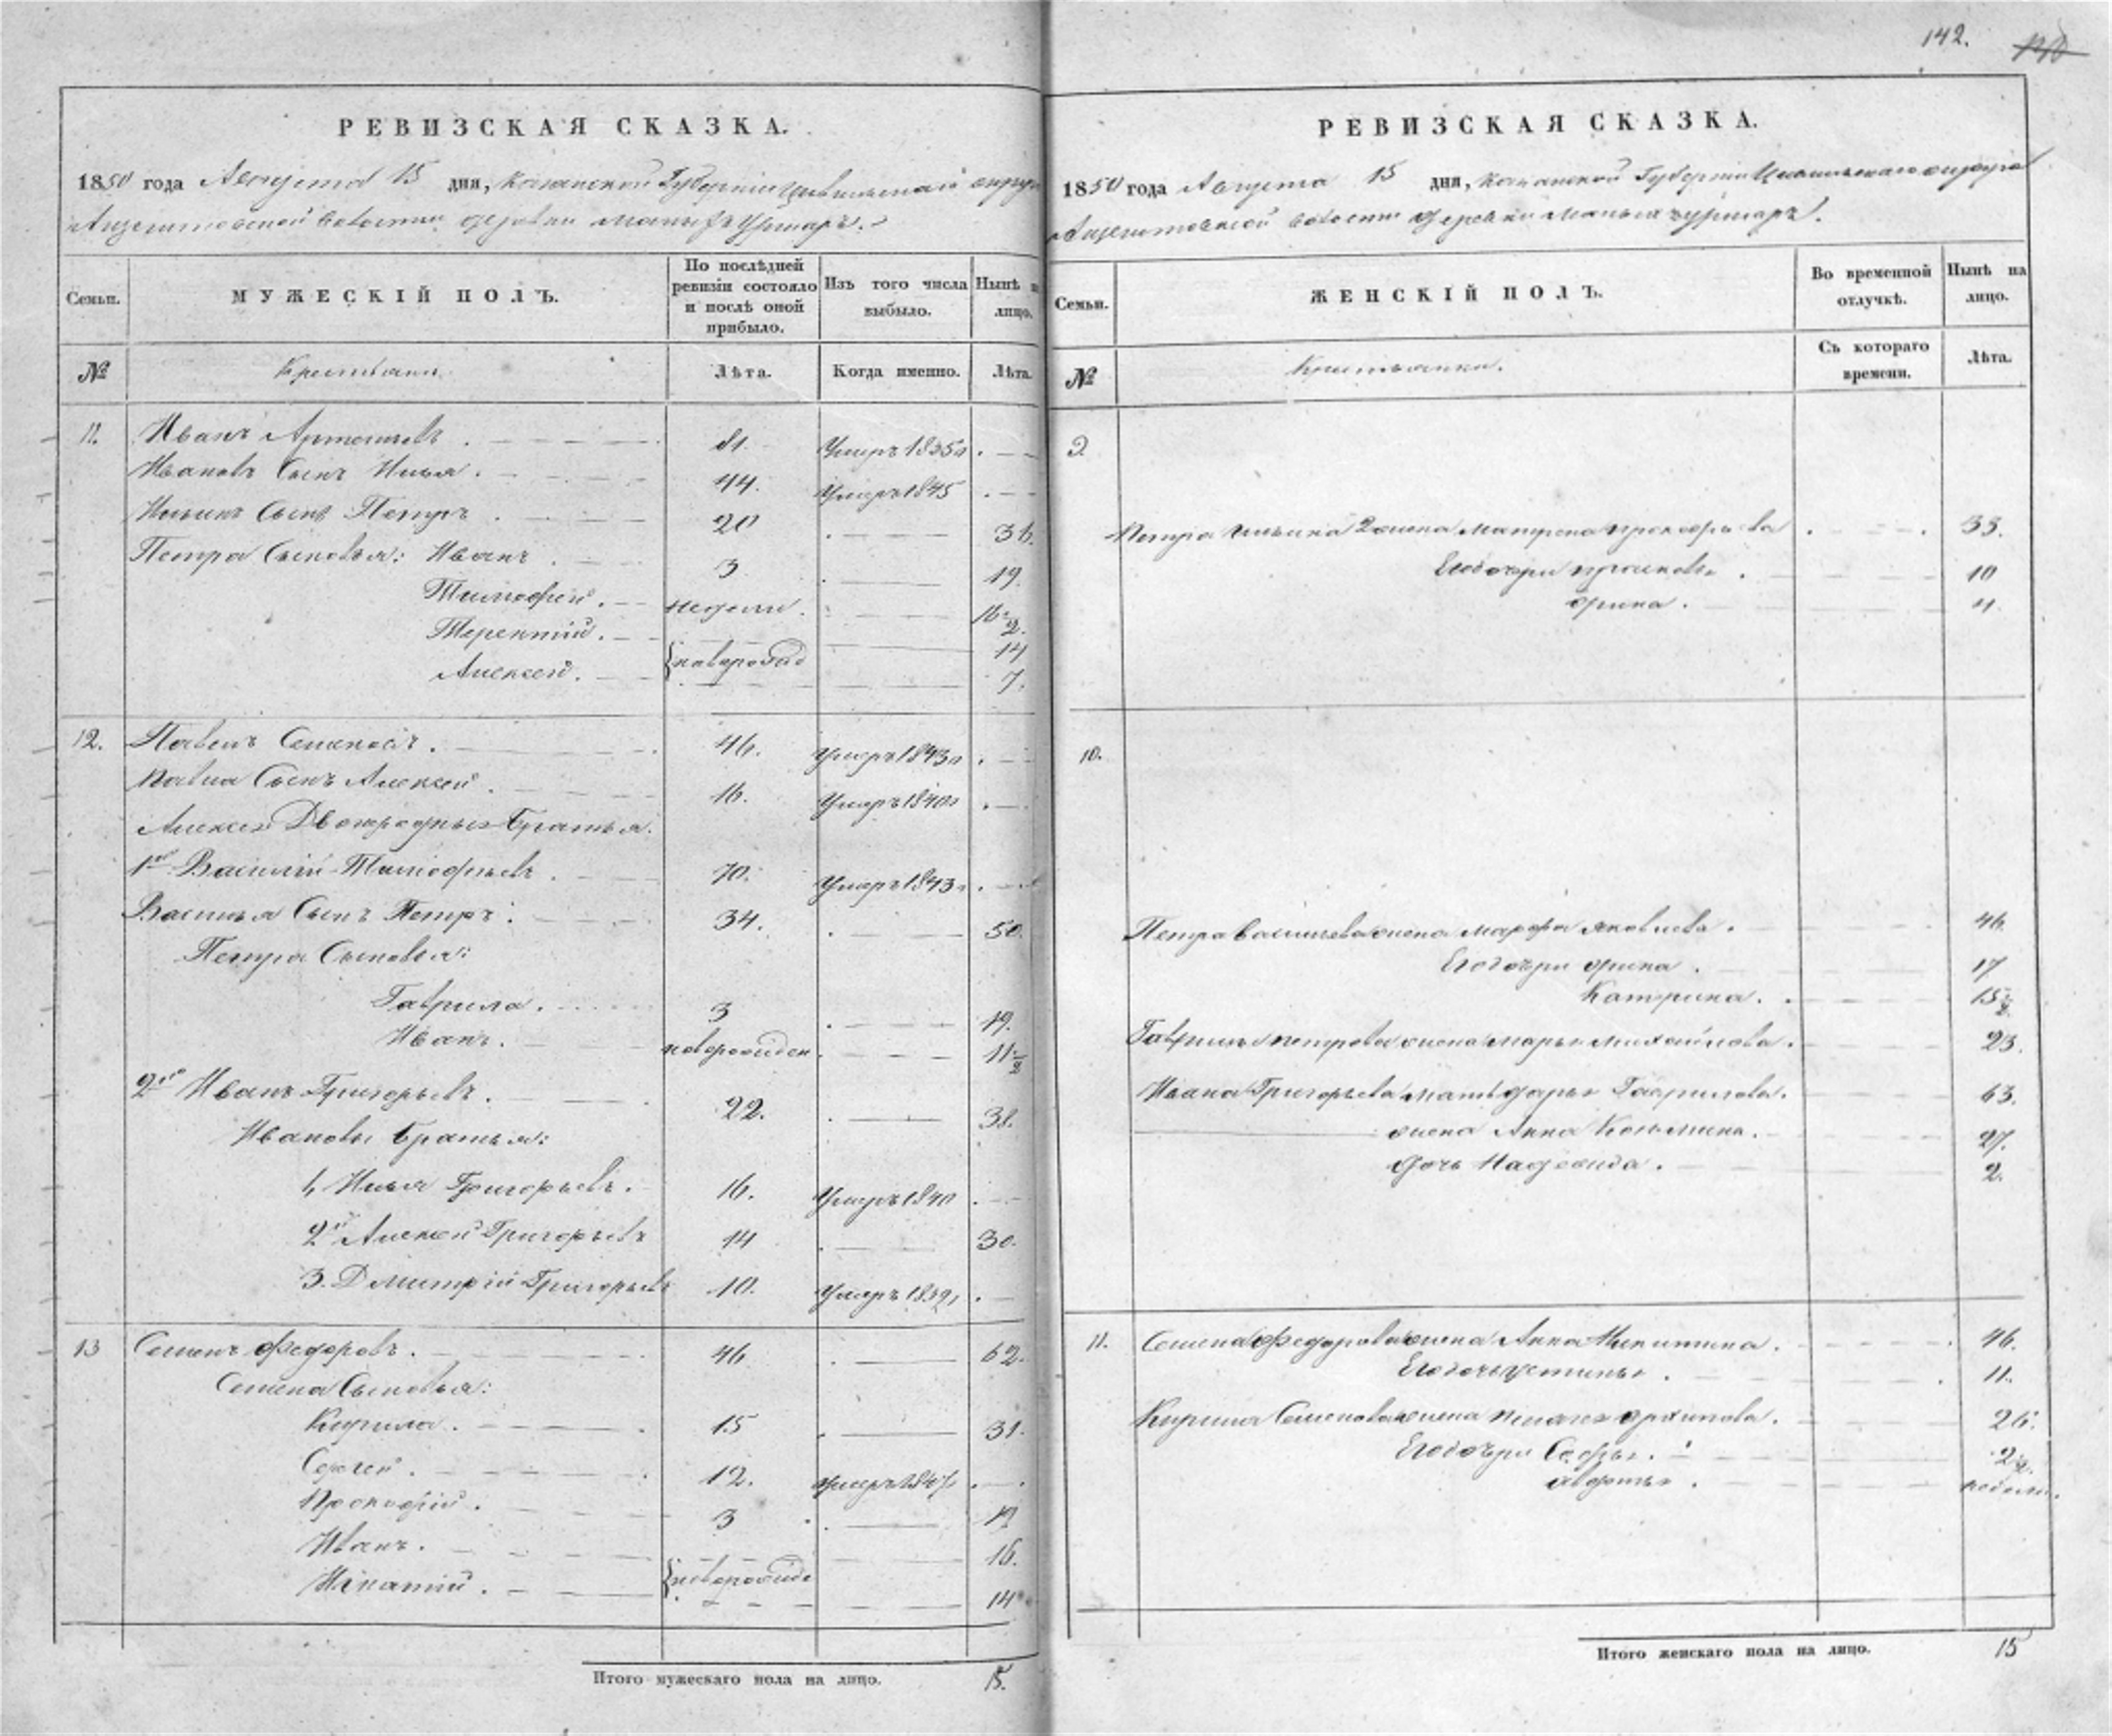 142.
РЕВИЗСКАЯ СКАЗКА.
1850 года Августа 15 дня, Казанской Губерніи Цивильскаго округа
волости деревни Малыхъ
Семьи.
МУЖЕСКІЙ ПОЛЪ.
По послѣдней ревизіи состояло и послѣ оной прибыло.
Изъ того числа выбыло.
Нынѣ на лицо.
№
Крестьяне.
Лѣта.
Когда именно.
Лѣта.
11. Иванъ Артемьевъ. 81. Умеръ 1835
Ивановъ Сынъ Илья. 44. Умеръ 1845
Ильинъ Сынъ Петръ 20 36.
Петра Сыновья: Иванъ 3 19.
Тимофей. недели. 16 1/2.
Терентий. новорожд 14
Алексей. 7.
12. Павелъ Семеновъ. 46. Умеръ 1843
Павла Сынъ Алексей. 16. Умеръ 1840
Алексея Двоюродныя Братья.
1й Василий Тимофеевъ. 70. Умеръ 1843
Василья Сынъ Петръ. 34. 50.
Петра Сыновья:
Гаврила. 3 19.
Иванъ. новорожден 11 1/2
2й Иванъ Григорьевъ. 22. 38.
Ивановы Братья:
1, Илья Григорьевъ. 16. Умеръ 1840
2й Алексей Григорьевъ 14 30.
3. Дмитрій Григорьевъ 10. Умеръ
13 Семенъ Федоровъ. 46 62.
Семена Сыновья:
Кирила. 15 31.
Сергей. 12. Умеръ
Прокофий. 3 19
Иванъ. 16.
Игнатий. новорожде 14
Итого мужескаго пола на лицо. 15.
РЕВИЗСКАЯ СКАЗКА.
1850 года Августа 15 дня, Казанской Губерніи Цивильскаго округа
волости деревни Малыхъ
Семьи.
ЖЕНСКІЙ ПОЛЪ.
Во временной отлучкѣ.
Нынѣ на лицо.
№
Крестьянки.
Съ котораго времени.
Лѣта.
9.
Петра Ильина 2 жена Матрена 33.
Его дочери Прасковья. 10
Орина. 4.
10.
Петра Васильева жена Марфа Яковлева. 46
Его дочери Орина. 17
Катерина. 15 1/2
Гаврилы Петрова жена Марья Михайлова. 23.
Ивана Григорьева мать Дарья Гаврилова. 63.
жена Анна Козьмина. 27.
дочь Надежда. 2.
11. Семена Федорова жена Анна Никитина. 46.
Его дочь Устинья. 11.
Кирила Семенова жена Пелагея Архипова. 26.
Его дочери Софья. 2 1/2.
Авдотья. недели.
Итого женскаго пола на лицо. 15